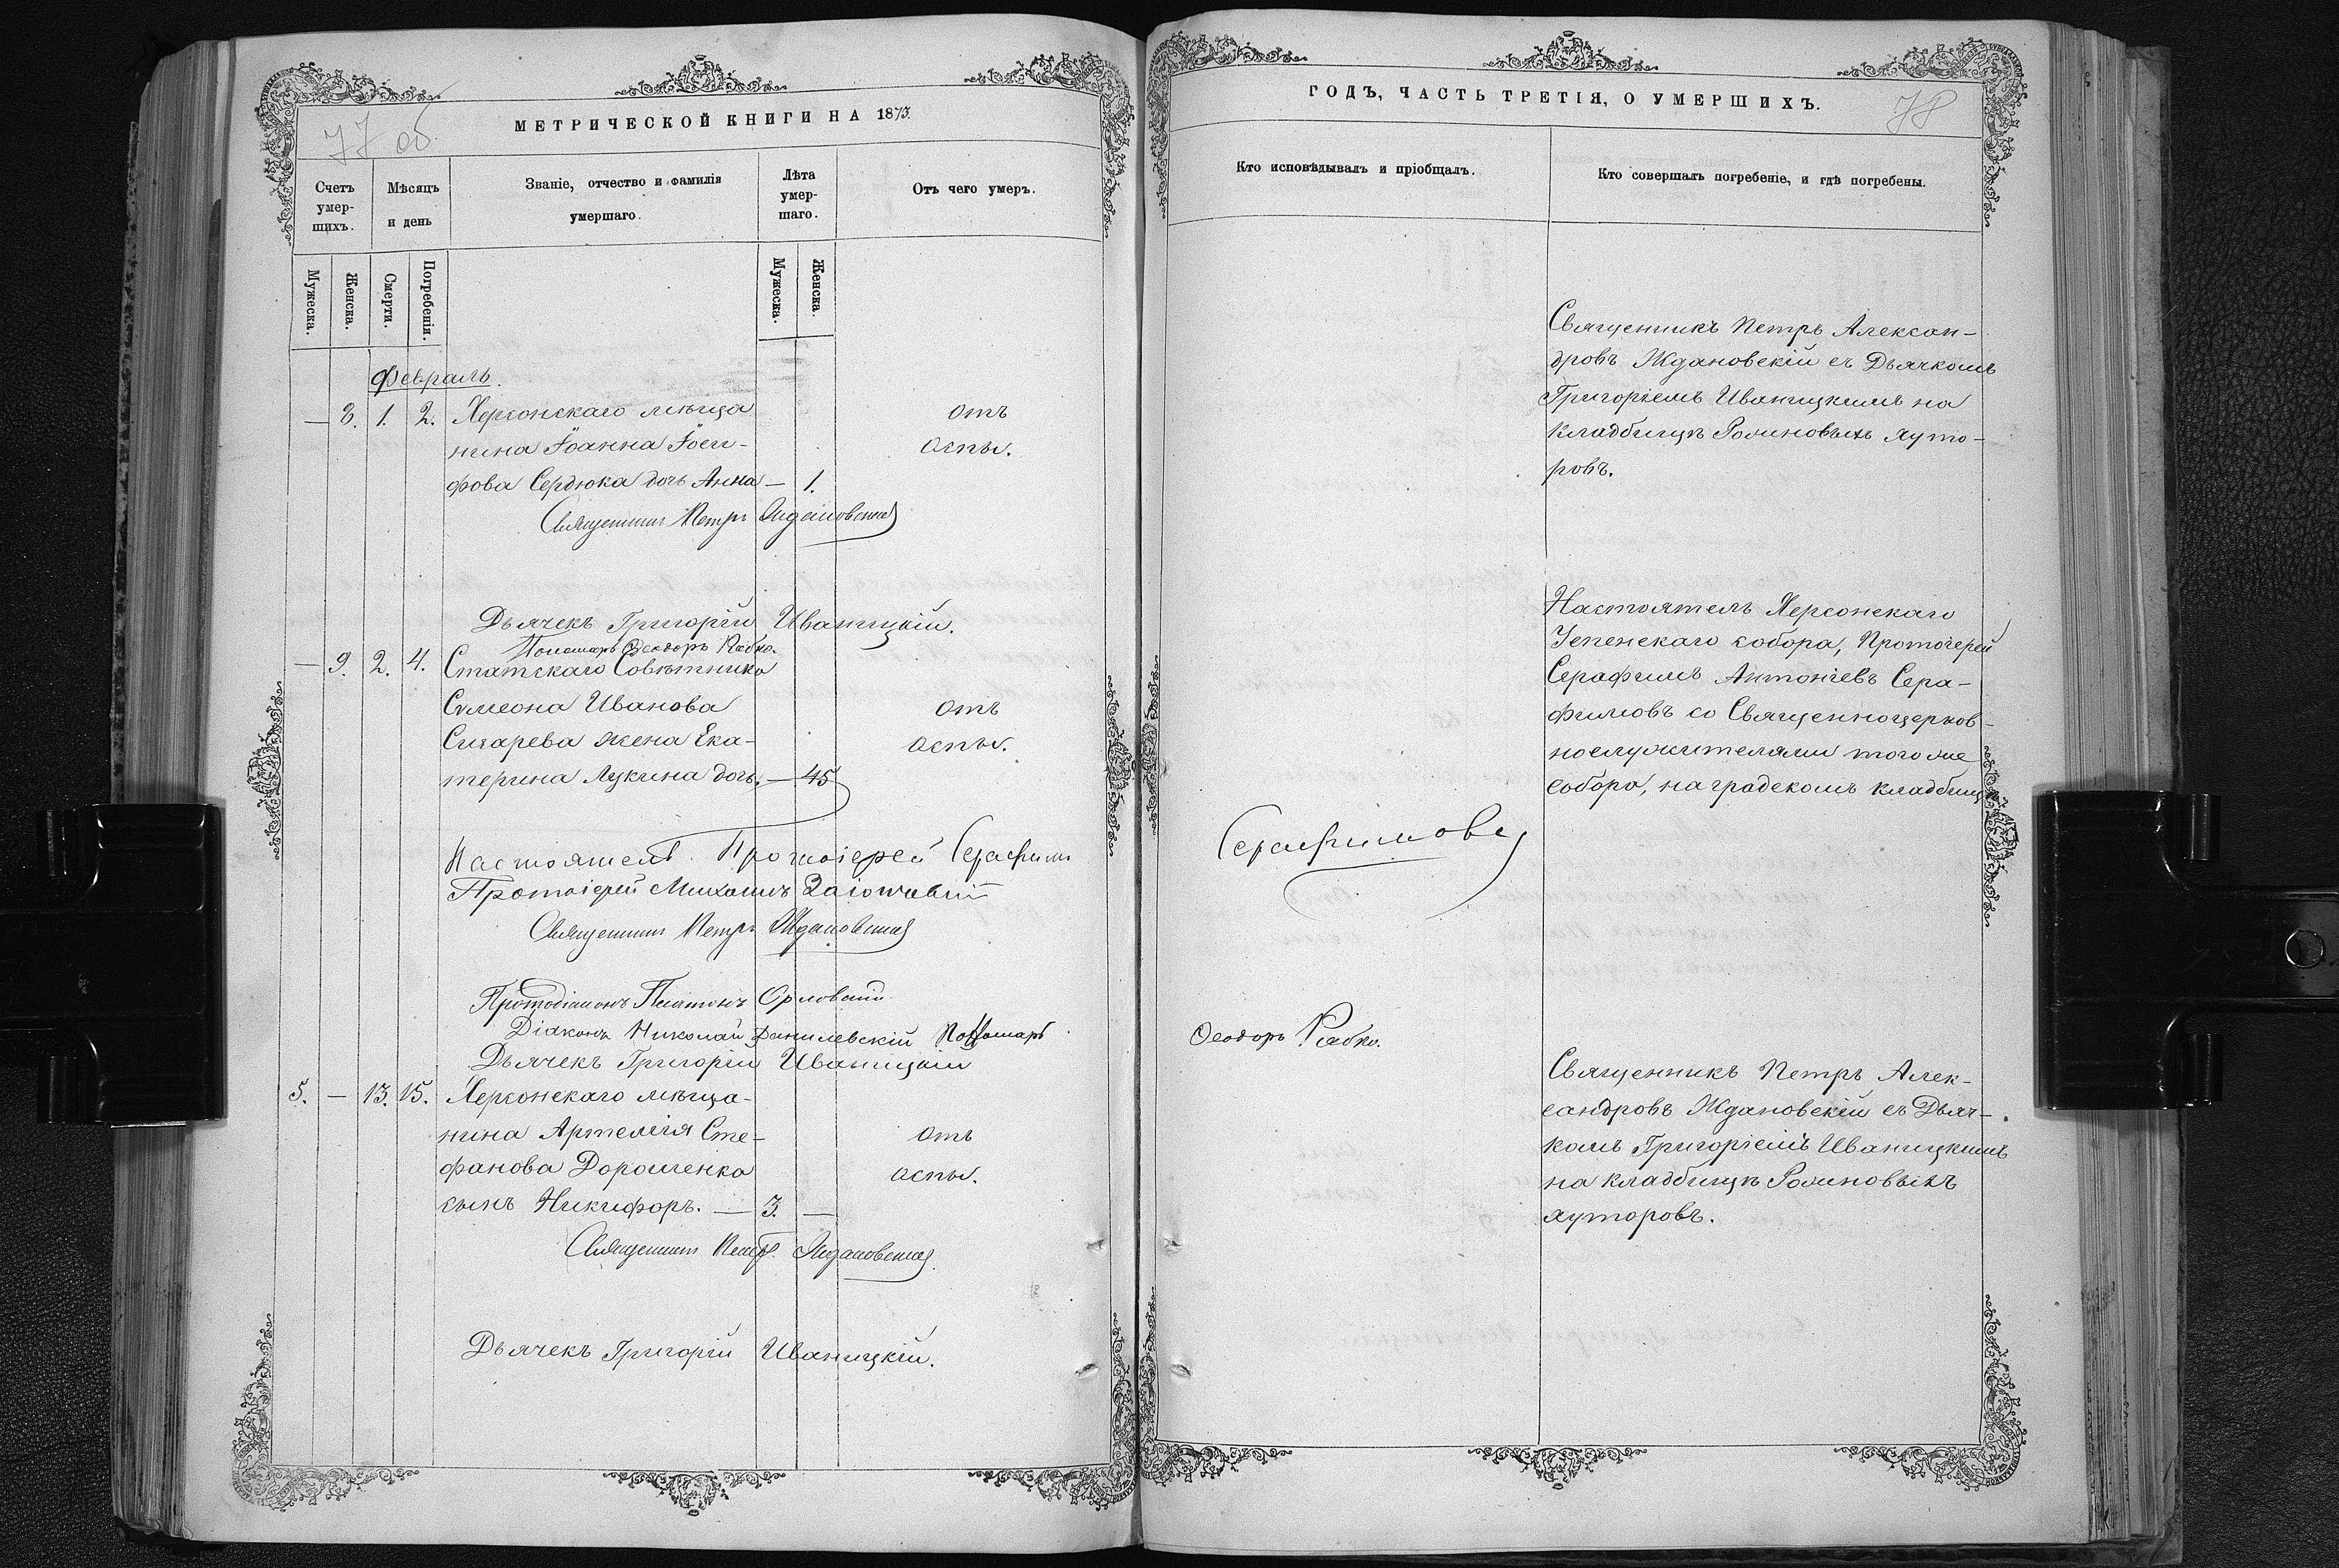 77 об.
МЕТРИЧЕСКОЙ КНИГИ НА 1873.
Счетъ умер-шихъ.
Мѣсяцъ и день
Званіе, отчество и фамилія умершаго.
Лѣта умер-шаго.
Отъ чего умеръ.
Мужеска.
Женска.
Смерти.
Погребенія.
Мужеска.
Женска.
Февраль.
— 8. 1. 2. Херсонскаго мѣща
нина Іоанна Іоси-
фова Сердюка дочь Анна — 1.
отъ
оспы.
Священникъ Петръ Ждановскій
Дьячекъ Григорій Иваницкій.
Пономарь Ѳеодоръ Рябко.
— 9. 2. 4. Статскаго Совѣтника
Симеона Иванова
Сигарева жена Ека-
терина Лукина дочь. — 45
отъ
оспы.
Настоятель Протоіерей Серафимъ
Протоіерей Михаилъ
Священникъ Петръ Ждановскій
Протодіаконъ Платонъ Орловскій
Діаконъ Николай Данилевскій Пономарь
Дьячекъ Григорій Иваницкій
5. — 13. 15. Херсонскаго мѣща-
нина Артемія Сте-
фанова Дорошенка
сынъ Никифоръ. — 3. —
отъ
оспы.
Священникъ Петръ Ждановскій
Дьячекъ Григорій Иваницкій.
ГОДЪ, ЧАСТЬ ТРЕТІЯ, О УМЕРШИХЪ.
78
Кто исповѣдывалъ и пріобщалъ.
Кто совершалъ погребеніе, и гдѣ погребены.
Священникъ Петръ Алексан-
дровъ Ждановскій съ Дьячкомъ
Григоріемъ Иваницкимъ на
кладбищѣ Розиновыхъ хуто-
ровъ.
Настоятель Херсонскаго
Успенскаго собора, Протоіерей
Серафимъ Антоніевъ Сера-
фимовъ со Священноцерков-
нослужителями того же
собора, на градскомъ кладбищѣ
Серафимовъ
Ѳеодоръ Рябко.
Священникъ Петръ Алек-
сандровъ Ждановскій съ Дьяч-
комъ Григоріемъ Иваницкимъ
на кладбищѣ Розиновыхъ
хуторовъ.